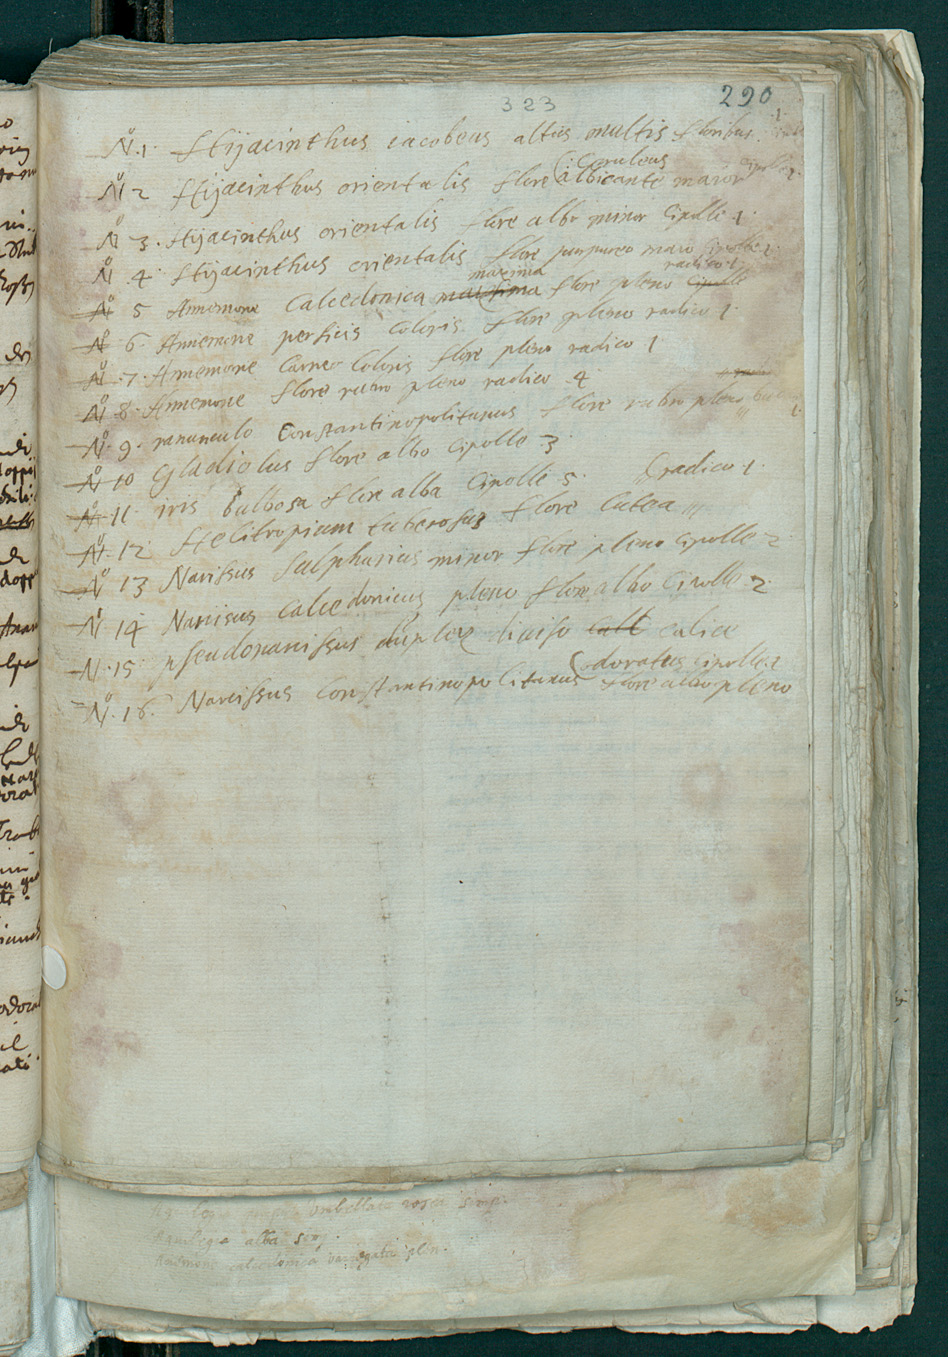 323
290
No 1. Hijacinthus iacobeus altus multis floribus 1
(ceruleus
No 2 Hijacinthus orientalis flore albicante maior Cipolle
No 3. Hijacinthus orientalis flore albo minor Cipolle 1.
No 4 Hijacinthus orientalis flore purpureo maio Cipolle 1
maxima radico 1
No 5 Annemone Calcedonica maxima flore pleno Cipolle
No 6. Annemone persici Coloris flore pleno radico 1
No 7. Annemone Carneo Coloris flore pleno radico 1
No 8. Annemone flore rubro pleno radico 4
No 9. ranunculo Constantinopolitanus flore rubro pleno 1
No 10 Gladiolus flore albo Cipolle 3
No 11 iris bulbosa flore alba Cipolle 5. radico 1.
No 12 Helitropium tuberosus flore lutea
No 13 Narissus Sulphurius minor flore pleno Cipolle 2
No 14 Narcisus Calcedonicus pleno flore albo Cipolle 2
No 15 pseudonarissus duplex calice
(odoratus Cipolle 2
No 16. Narcissus Constantinopolitanus flore albo pleno
umbellata rosea simp.
Aquilegia alba simp.
Anemone calcedonica variegata plen.